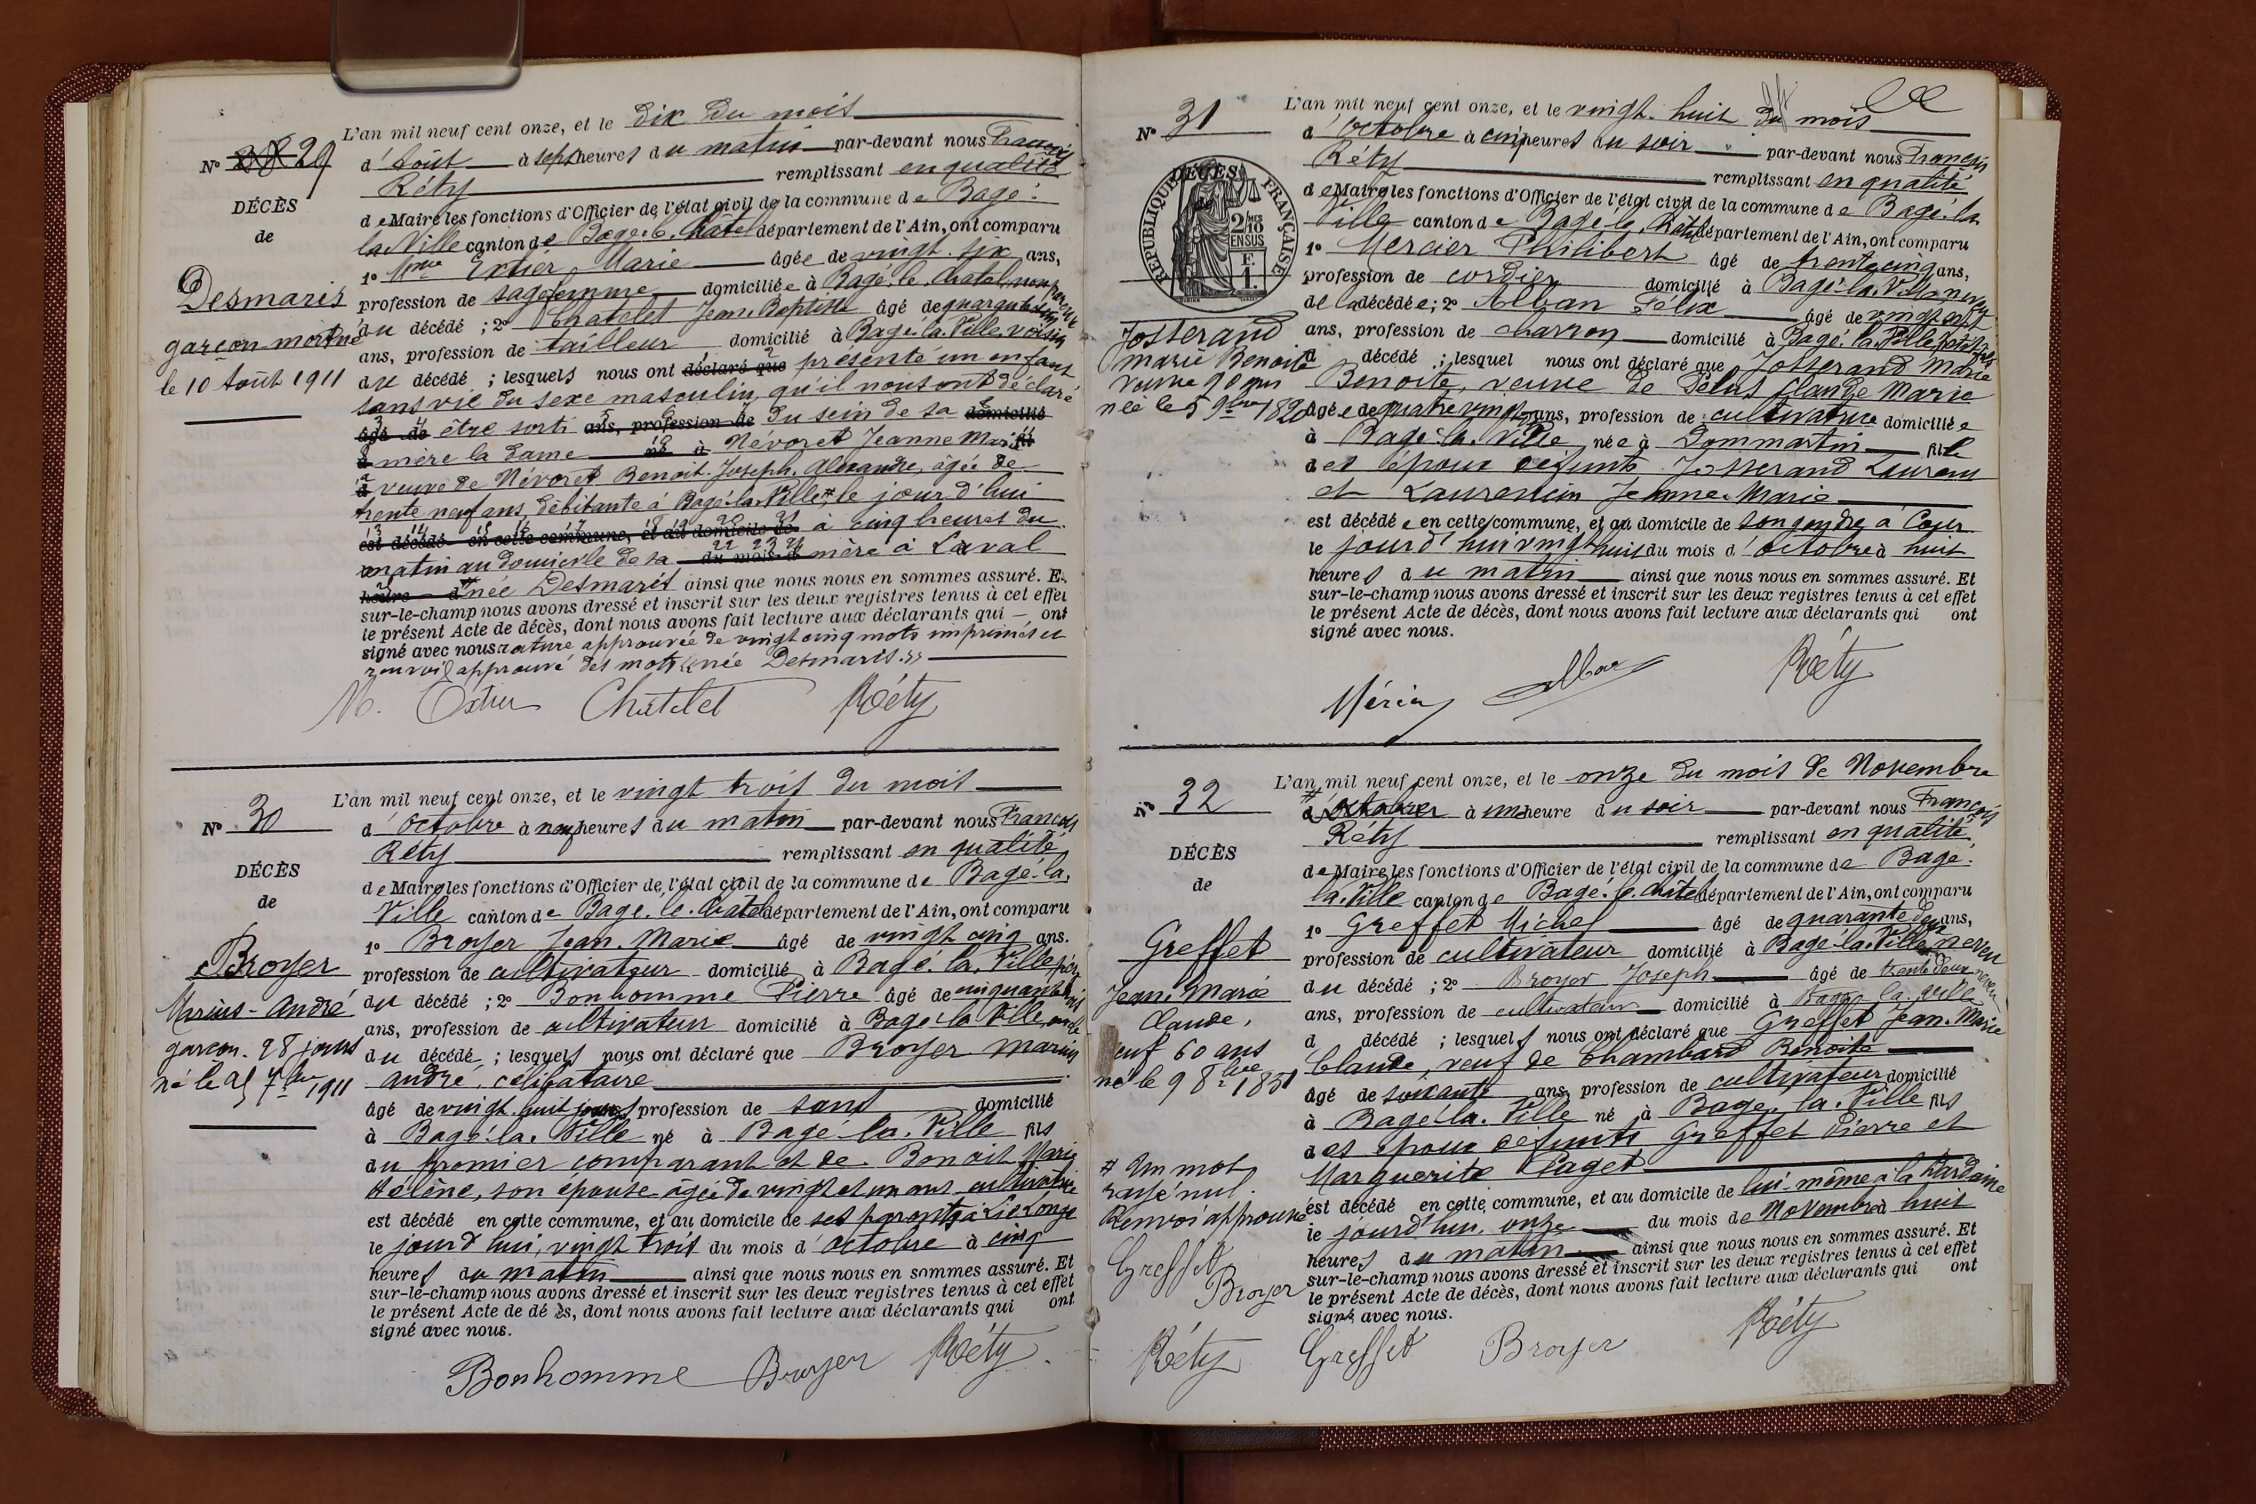 N° 29
DÉCÈS
de
Desmaris
garçon mort né
le 10 Août 1911
L'an mil neuf cent onze, et le dix du mois
d'Août à sept heures du matin par-devant nous François
Réty remplissant en qualité
de Maire les fonctions d'Officier de l'état civil de la commune de Bagé-
la-Ville canton de Bagé-le-Châtel département de l'Ain, ont comparu
1° Mme Extier Marie âgée de vingt-six ans,
profession de sage femme domiciliée à Bagé-le-Chatel, non parente
du décédé ; 2° Chatelet Jean-Baptiste âgé de quarante
ans, profession de tailleur domicilié à Bagé-la-Ville, voisin
du décédé ; lesquels nous ont déclaré que présenté un enfant
sans vie du sexe masculin, qu'il nous ont déclaré
âgé de être sorti ans, profession de du sein de sa domicilié
à mère la dame né à Névoret Jeanne Marie
à veuve de Névoret Benoit Joseph Alexandre, âgée de
trente neuf ans, débitante à Bagé-la-Ville, le jour d'hui
est décédé en cette commune, et au domicile de à cinq heures du
matin au domicile de sa du mois d mère à Laval
heure d née Desmaris ainsi que nous nous en sommes assuré. Et
sur-le-champ nous avons dressé et inscrit sur les deux registres tenus à cet effet
le présent Acte de décès, dont nous avons fait lecture aux déclarants qui ont
signé avec nous rature approuvée de vingt cinq mots imprimés et
renvoi approuvé des mots « née Desmaris. »
M. Extier Châtelet Réty
N° 30
DÉCÈS
de
Broyer
Marius-André
garçon. 28 jours
né le 25 7bre 1911
L'an mil neuf cent onze, et le vingt trois du mois
d'Octobre à neuf heures du matin par-devant nous François
Réty remplissant en qualité
de Maire les fonctions d'Officier de l'état civil de la commune de Bagé-la-
Ville canton de Bagé-le-Chatel département de l'Ain, ont comparu
1° Broyer Jean-Marie âgé de vingt cinq ans.
profession de cultivateur domicilié à Bagé-la-Ville père
du décédé ; 2° Bonhomme Pierre âgé de cinquante trois
ans, profession de cultivateur domicilié à Bagé-la-Ville, oncle
du décédé ; lesquels nous ont déclaré que Broyer Marius
André, célibataire
âgé de vingt-huit jours, profession de sans domicilié
à Bagé-la-Ville né à Bagé-la-Ville fils
du premier comparant et de Benoit Marie
Hélène, son épouse âgée de vingt et un ans cultivatrice
est décédé en cette commune, et au domicile de ses parents à
le jourd'hui, vingt trois du mois d'octobre à cinq
heures du matin ainsi que nous nous en sommes assuré. Et
sur-le-champ nous avons dressé et inscrit sur les deux registres tenus à cet effet
le présent Acte de dé ès, dont nous avons fait lecture aux déclarants qui ont
signé avec nous.
Bonhomme Broyer Réty
N° 31
RÉPUBLIQUE FRANÇAISE
DÉCÈS
de
2/10 EN SUS
F. 1.
Josserand
Marie Benoite
veuve 90 ans
née le 5 9bre 1820
L'an mil neuf cent onze, et le vingt-huit du mois
d'Octobre à cinq heures du soir par-devant nous François
Réty remplissant en qualité
de Maire les fonctions d'Officier de l'état civil de la commune de Bagé-la-
Ville canton de Bagé-le-Châtel département de l'Ain, ont comparu
1° Mercier Philibert âgé de trente cinq ans,
profession de cordier domicilié à Bagé-la-Ville neveu
de la décédée ; 2° Alban Félix âgé de vingt sept
ans, profession de charron domicilié à Bagé-la-Ville petit-fils
d décédé ; lesquel nous ont déclaré que Josserand Marie
Benoite, veuve de Claude Marie
âgée de quatre vingt dix ans, profession de cultivatrice domiciliée
à Bagé-la-Ville née à Dommartin fille
des époux défunts Josserand Laurent
et Laurencin Jeanne-Marie
est décédée en cette commune, et au domicile de son gendre à
le jourd'hui vingt huit du mois d'octobre à huit
heures du matin ainsi que nous nous en sommes assuré. Et
sur-le-champ nous avons dressé et inscrit sur les deux registres tenus à cet effet
le présent Acte de décès, dont nous avons fait lecture aux déclarants qui ont
signé avec nous.
Alban Réty
N° 32
DÉCÈS
de
Greffet
Jean-Marie
Claude,
veuf 60 ans
né le 9 8bre 1851
# Un mot
rayé nul.
Renvoi approuvé
Greffet
Broyer
Réty
L'an mil neuf cent onze, et le onze du mois de Novembre
d'Octobre à une heure du soir par-devant nous François
Réty remplissant en qualité
de Maire les fonctions d'Officier de l'état civil de la commune de Bagé-
la-Ville canton de Bagé-le-Châtel département de l'Ain, ont comparu
1° Greffet Michel âgé de quarante deux ans,
profession de cultivateur domicilié à Bagé-la-Ville, neveu
du décédé ; 2° Broyer Joseph âgé de trente deux
ans, profession de cultivateur domicilié à Bagé la Ville neveu
d décédé ; lesquels nous ont déclaré que Greffet Jean-Marie
Claude, veuf de Chambard Benoite
âgé de soixante ans, profession de cultivateur domicilié
à Bagé-la-Ville né à Bagé-la-Ville fils
des époux défunts Greffet Pierre et
Marguerite Paget
est décédé en cette commune, et au domicile de lui-même à la
le jourd'hui onze du mois de Novembre à huit
heures du matin ainsi que nous nous en sommes assuré. Et
sur-le-champ nous avons dressé et inscrit sur les deux registres tenus à cet effet
le présent Acte de décès, dont nous avons fait lecture aux déclarants qui ont
signé avec nous.
Greffet Broyer Réty